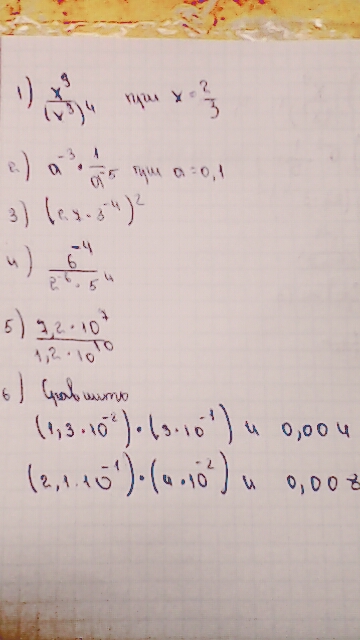 1) x⁹/(x³)⁴ при x = 2/3
2) a⁻³ · 1/a⁻⁵ при a = 0,1
3) (27 · 3⁻⁴)²
4) 6⁻⁴/(2⁻⁶ · 5⁴)
5) 7,2 · 10⁷/(1,2 · 10¹⁰)
6) Сравнить
(1,3 · 10⁻²) · (3 · 10⁻¹) и 0,004
(2,1 · 10⁻¹) · (4 · 10⁻²) и 0,00